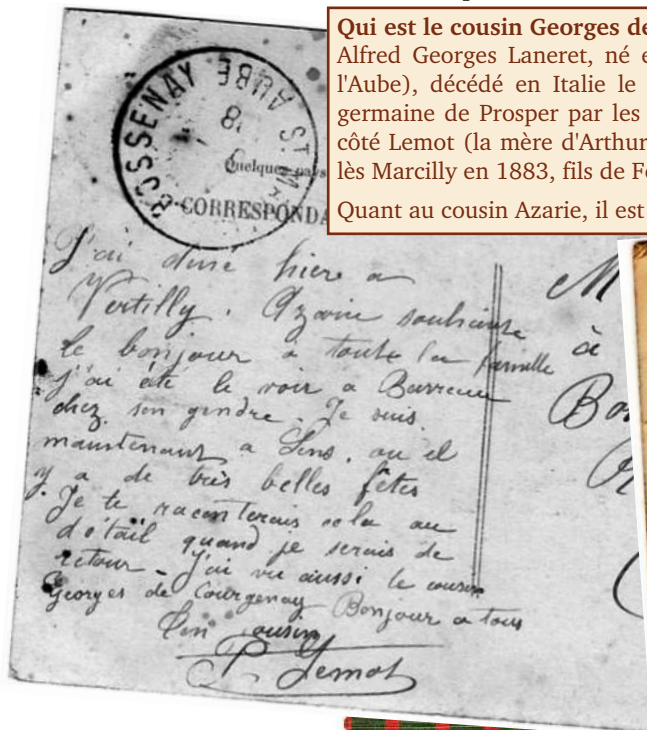 Qui est le cousin Georges de
Alfred Georges Laneret, né e
l'Aube), décédé en Italie le
germaine de Prosper par les
côté Lemot (la mère d'Arthur
lès Marcilly en 1883, fils de F
Quant au cousin Azarie, il est
BOSSENAY AUBE ST M
8
Quelques pays
CORRESPONDA
J'ai diné hiere a
Vertilly. Azarie souhaite
le bonjour a toute la famille
j'ai été le voir a Barreau
chez son gendre. Je suis
maintenant a Sens, ou il
y a de très belles fêtes
Je te raconterais cela au
détail quand je serais de
retour - J'ai vu aussi le cousin
Georges de Courgenay Bonjour a tous
Ton cousin
P Lemot
M
à
Bo